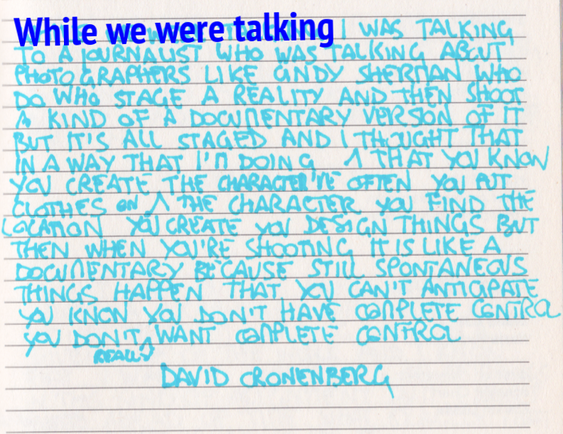 While we were talking
I WAS TALKING
TO A JOURNALIST WHO WAS TALKING ABOUT
PHOTOGRAPHERS LIKE CINDY SHERMAN WHO
DO WHO STAGE A REALITY AND THEN SHOOT
A KIND OF A DOCUMENTARY VERSION OF IT
BUT IT'S ALL STAGED AND I THOUGHT THAT
IN A WAY THAT I'M DOING THAT YOU KNOW
YOU CREATE THE CHARACTER I'VE OFTEN YOU PUT
CLOTHES ON THE CHARACTER YOU FIND THE
LOCATION YOU CREATE YOU DESIGN THINGS BUT
THEN WHEN YOU'RE SHOOTING IT IS LIKE A
DOCUMENTARY BECAUSE STILL SPONTANEOUS
THINGS HAPPEN THAT YOU CAN'T ANTICIPATE
YOU KNOW YOU DON'T HAVE COMPLETE CONTROL
YOU DON'T WANT COMPLETE CONTROL
REALLY
DAVID CRONENBERG